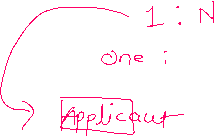 1 : N
one :
Applicant